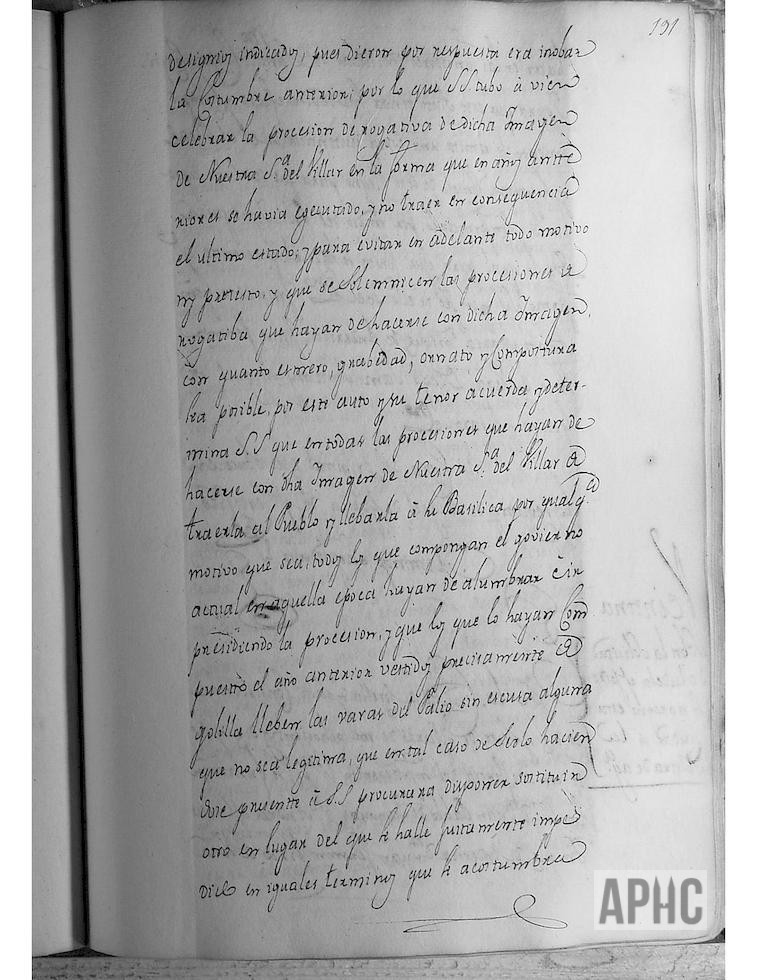 191
designios indicados, pues dieron por respuesta era inobar
la Costumbre anterior; por lo que S.S. tubo à vien
celebrar la procesion de rogativa de dicha Imagen
de Nuestra S.ª del Villar en la forma que en años antte
riores se havia egecutado, y no traer en consequencia
el ultimo estado; y para evitar en adelante todo motivo
ny pretesto, y que se solemnicen las procesiones de
rogatiba que hayan de hacerse con dicha Imagen,
con quanto esmero, grabedad, ornato y Compostura
sea posible, por este auto y su tenor acuerda y deter-
mina S.S que en todas las procesiones que hayan de
hacerse con dha Imagen de Nuestra S.ª del Villar de
traerla al Pueblo y llebarla à su Basilica por qualq.ª
motivo que sea, todos los que compongan el govierno
actual en aquella epoca hayan de alumbrar è ir
presidiendo la procesion, y que los que lo hayan Com
puesto el año anterior vestidos precisamente de
golilla lleben las varas del Palio sin escusa alguna
que no sea legitima, que en tal caso de serlo hacien
dose presentte à S.S procurara disponer sostituir
otro en lugar del que se halle justamente impe
dido en iguales terminos que se acostumbra
APHC